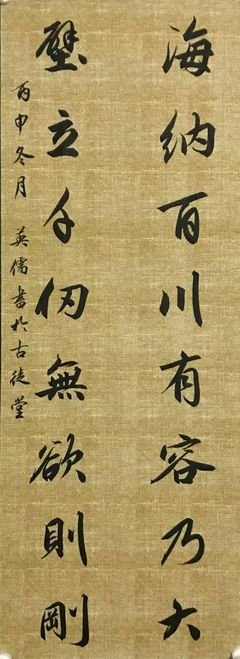 海納百川有容乃大
壁立千仞無欲則剛
丙申冬月 英儒書於古徒堂